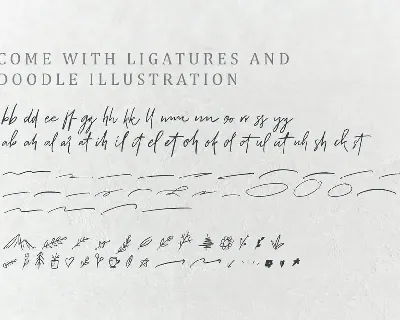 COME WITH LIGATURES AND
DOODLE ILLUSTRATION
bb dd ee ff gg hh kk ll mm nn oo rr ss yy
ab ah al at ih il it el et oh ok ol ot ul ut uh sh ck st